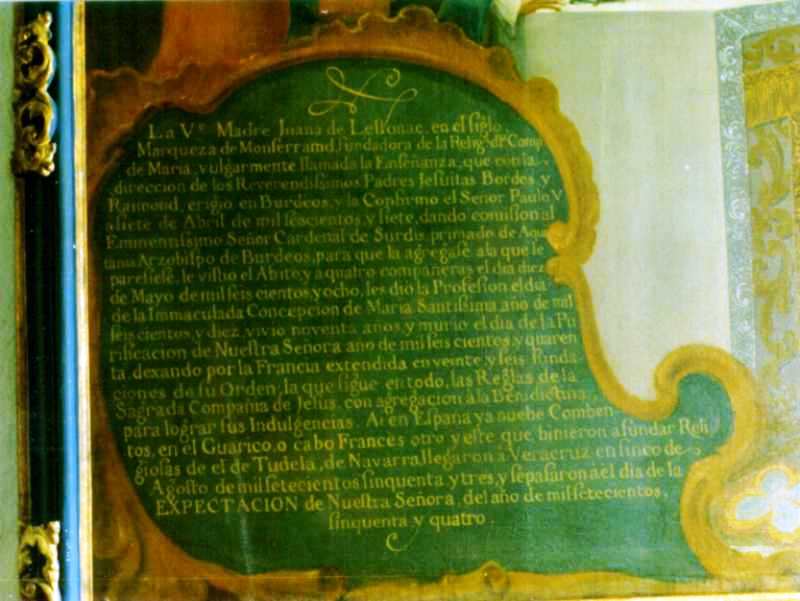 La Ve Madre Juana de Lestonac, en el siglo
Marqueza de Monferramd, fundadora de la Relign. de Compa.
de Maria, vulgarmente llamada la Enseñanza, que con la
direccion de los Reverendissimos Padres Jesuitas Bordes, y
Raimond, erigio en Burdeos, y la Confirmo el Señor Paulo V
a siete de Abril de mil seiscientos, y siete, dando comission al
Eminentissimo Señor Cardenal de Surdis primado de Aqui
tania Arzobispo de Burdeos, para que la agregase a la que le
pareciese, le vistio el Abito, y a quatro compañeras el dia diez
de Mayo de mil seis cientos, y ocho, les dio la Profession el dia
de la Immaculada Concepcion de Maria Santissima, año de mil
seis cientos, y diez, vivio noventa años, y murio el dia de la Pu
rificacion de Nuestra Señora año de mil seis cientos, y quaren
ta, dexando por la Francia extendida en veinte, y seis funda
ciones de su Orden, la que sigue en todo, las Reglas de la
Sagrada Compañia de Jesus, con agregacion a la Benedictina
para lograr sus Indulgencias. Ai en España ya nuebe Comben
tos, en el Guarico, o cabo Frances otro, y este que binieron a fundar Reli
giosas de el de Tudela, de Navarra, llegaron a Veracruz en sinco de
Agosto de mil setecientos sinquenta y tres, y se pasaron a el dia de la
EXPECTACION de Nuestra Señora, del año de mil setecientos,
sinquenta y quatro.